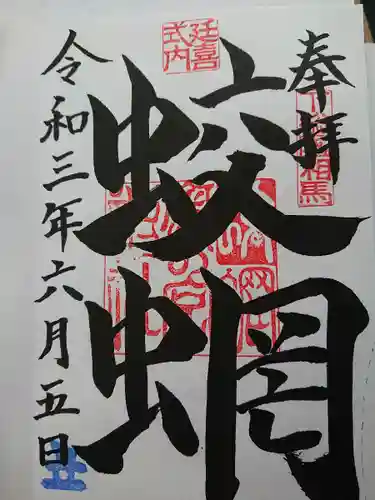 奉拝
下総相馬
延喜
式内
蛟蝄
令和三年六月五日